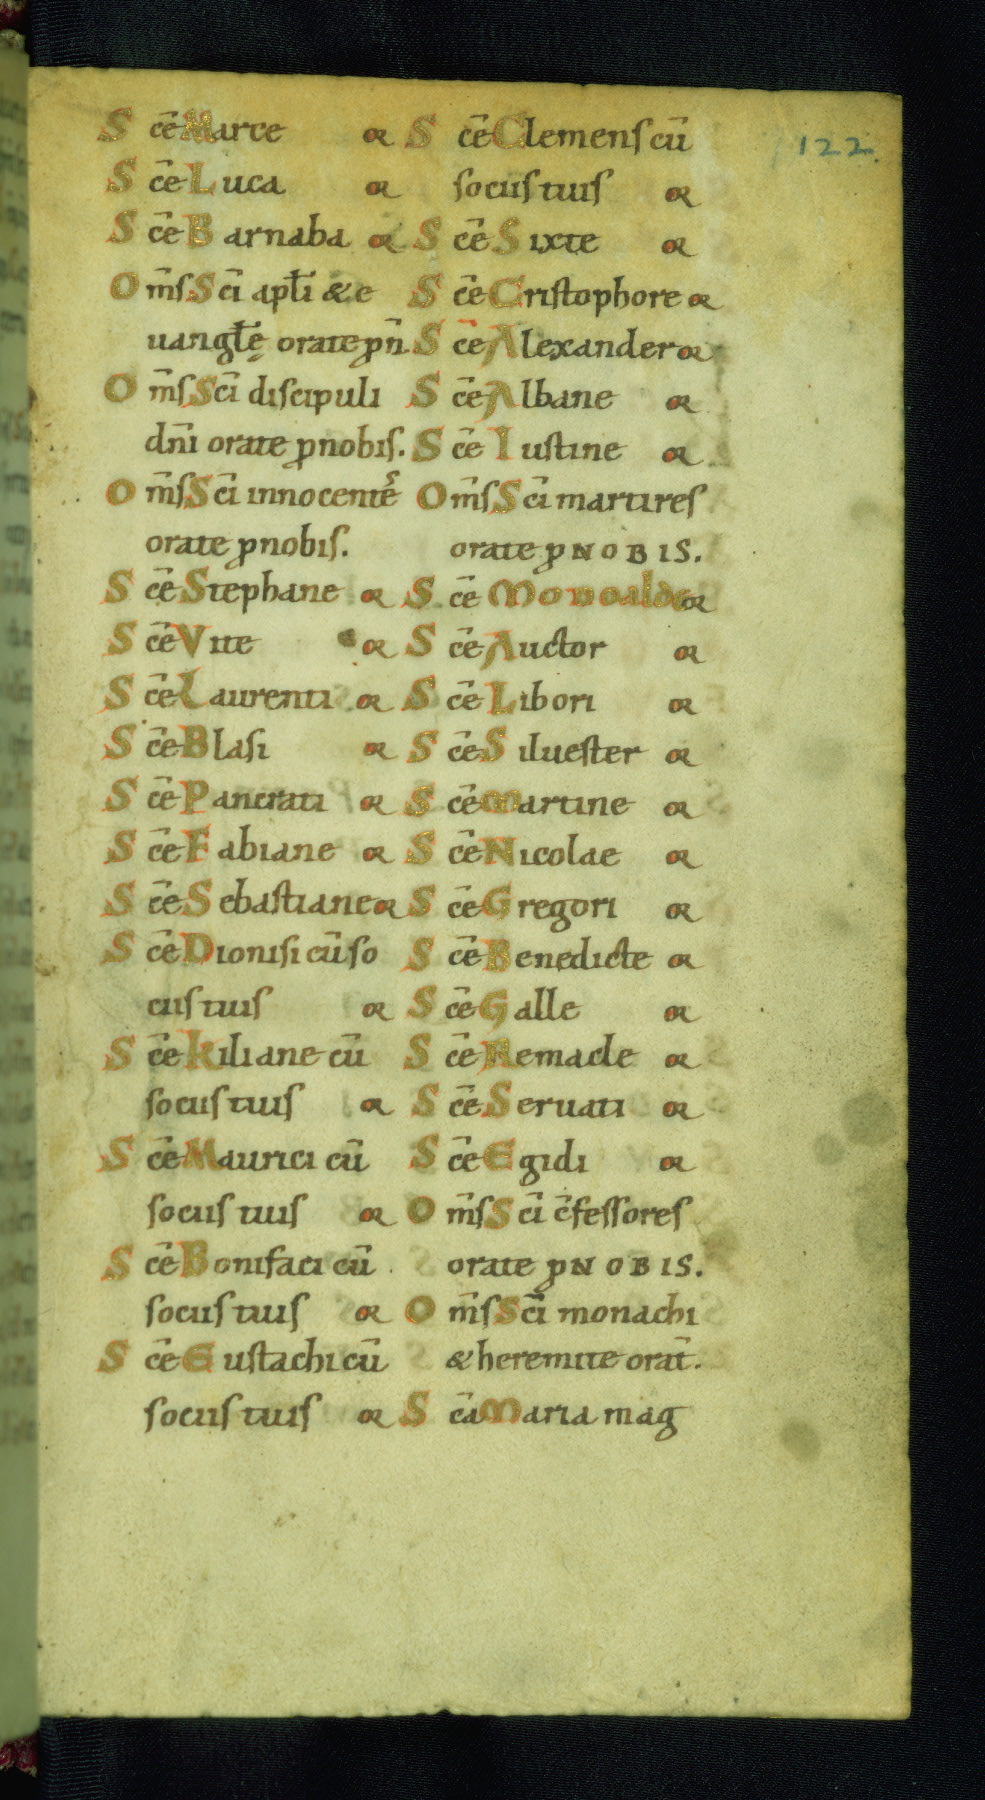 122
Sc̄e Marce or
Sc̄e Luca or
Sc̄e Barnaba or
Om̄ſ Sc̄i apl̄i & e
uangl̄ę orate ꝓ n̄
Om̄ſ Sc̄i diſcipuli
dn̄i orate ꝓ nobiſ.
Om̄ſ Sc̄i innocentēſ
orate ꝓ nobiſ.
Sc̄e Stephane or
Sc̄e Vite or
Sc̄e Laurenti or
Sc̄e Blaſi or
Sc̄e Pancrati or
Sc̄e Fabiane or
Sc̄e Sebaſtiane or
Sc̄e Dioniſi cū ſo
ciiſ tuiſ or
Sc̄e Kiliane cū
ſociiſ tuiſ or
Sc̄e Maurici cū
ſociiſ tuiſ or
Sc̄e Bonifaci cū
ſociiſ tuiſ or
Sc̄e Euſtachi cū
ſociiſ tuiſ or
Sc̄e Clemenſ cū
ſociiſ tuiſ or
Sc̄e Sixte or
Sc̄e Criſtophore or
Sc̄e Alexander or
Sc̄e Albane or
Sc̄e Iuſtine or
Om̄ſ Sc̄i martireſ
orate ꝓ NOBIS.
Sc̄e Monoalde or
Sc̄e Auctor or
Sc̄e Libori or
Sc̄e Silueſter or
Sc̄e Martine or
Sc̄e Nicolae or
Sc̄e Gregori or
Sc̄e Benedicte or
Sc̄e Galle or
Sc̄e Remacle or
Sc̄e Seruati or
Sc̄e Egidi or
Om̄ſ Sc̄i c̄feſſoreſ
orate ꝓ NOBIS.
Om̄ſ Sc̄i monachi
& heremite orat̄.
Sc̄a Maria mag